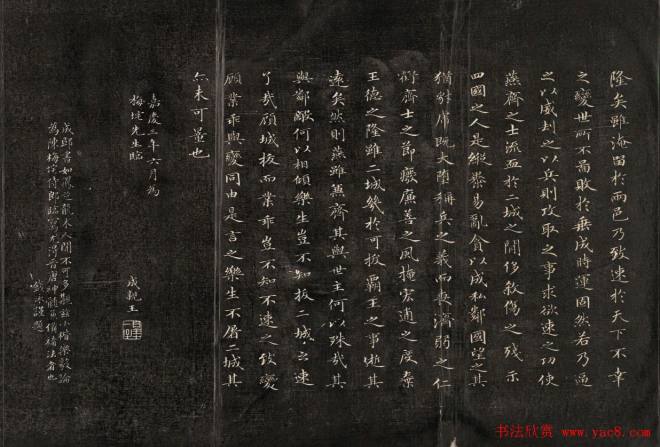 除矣雖淹留於兩邑乃致速於天下不幸
之變世所不圖敗於垂成時運固然若乃逼
之以威刧之以兵則攻取之事求欲速之功使
燕齊之士流血於二城之間侈殺傷之殘示
四國之人是縱暴易亂貪以成私鄰國望之其
猶豺虎既大墮稱兵之義而喪濟弱之仁
虧齊士之節廢廉善之風掩宏通之度棄
王德之隆雖二城幾於可拔霸王之事逝其
遠矣然則燕雖兼齊其與世主何以殊哉其
與鄰敵何以相傾樂生豈不知拔二城之速
了哉顧城拔而業乖豈不知不速之致變
顧業乖與變同由是言之樂生不屠二城其
亦未可量也
嘉慶三年六月為
梅垞先生臨
成親王
成邸書如人間不可多觀茲小楷樂毅論
為陳梅垞侍郎臨寫尤得晉唐神髓法者也
謹題
书法欣赏 www.yac8.com